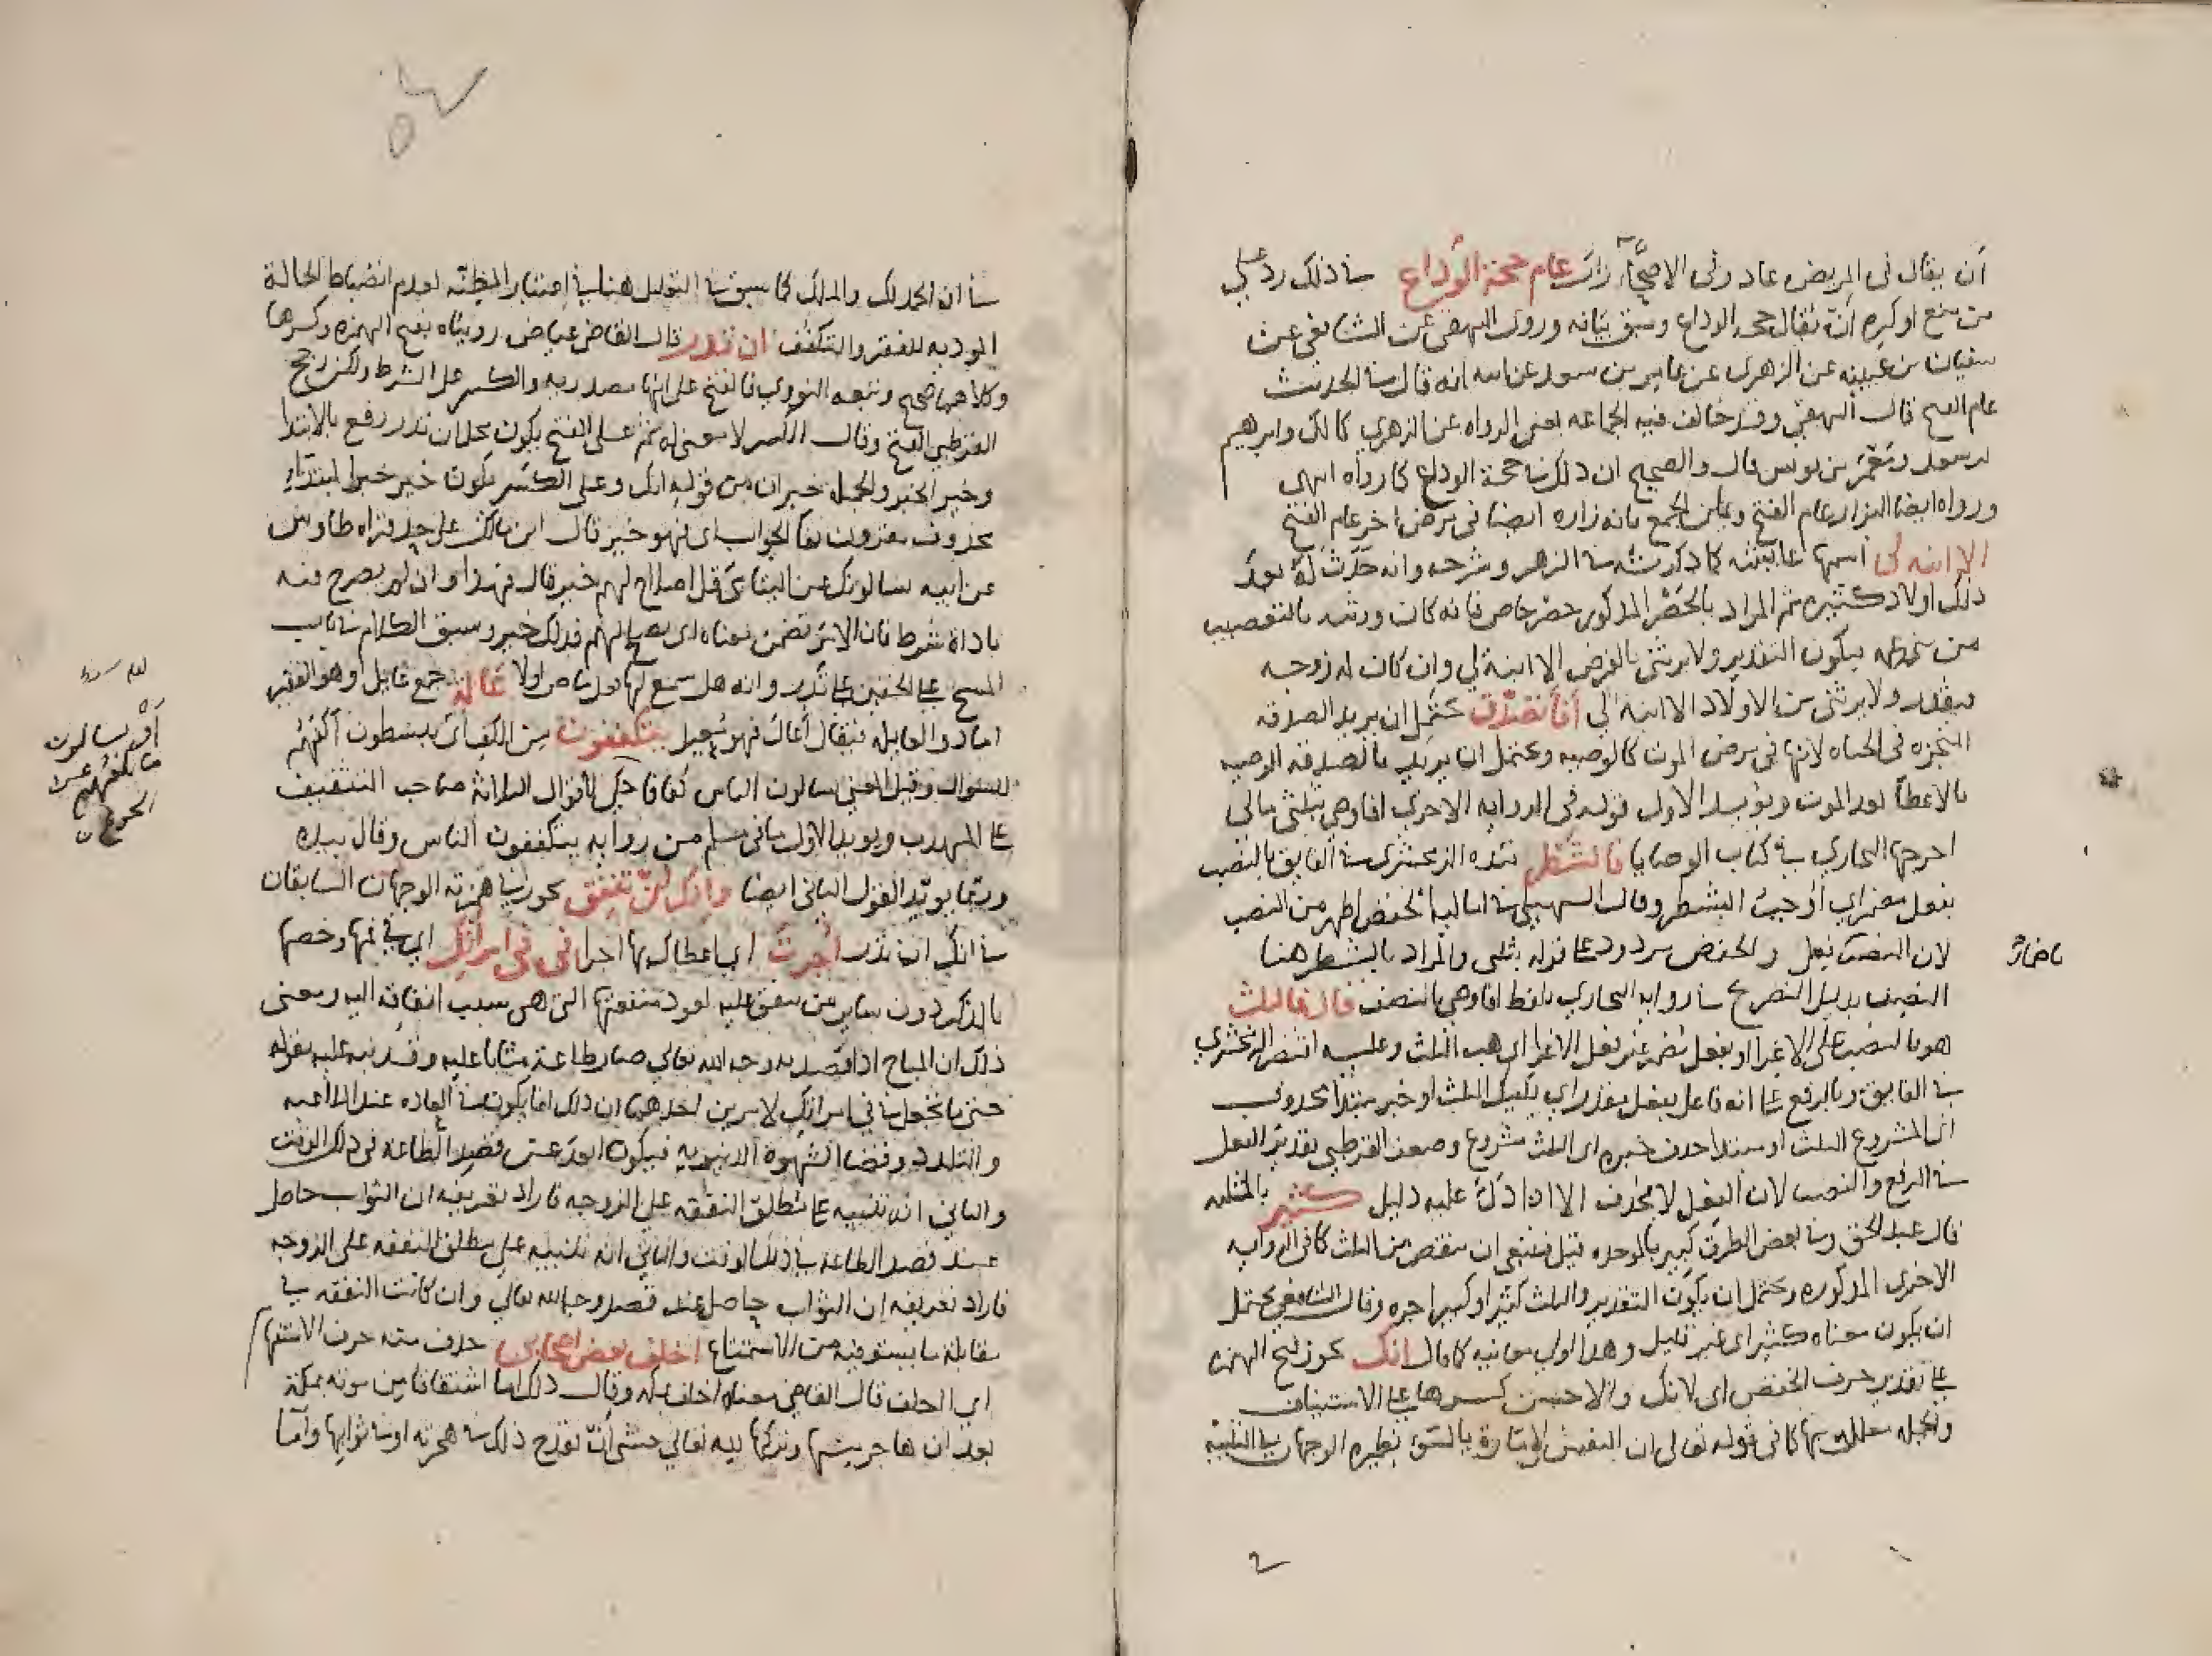 أن يقال في المريض عاد وفي الاصحاء زار عام حجة الوداع في ذلك رد على
من منع او كره أن يقال حجه الوداع وسبق بيانه وروى البيهقي عن الشافعي عن
سفيان بن عيينه عن الزهرى عن عامر بن سعد عن ابيه انه قال في الحديث
عام الفتح قال البيهقي وقد خالف فيه الجماعه يعنى الرواه عن الزهري كمالك وابراهيم
بن سعد ومعمر بن يونس قال والصحيح ان ذلك في حجة الوداع كما رواه انتهى
ورواه ايضا البزار عام الفتح ويمكن الجمع بانه زاره ايضا في مرض اخر عام الفتح
الا ابنه لى اسمها عائشه كما ذكرته في الزهر وشرحه وانه حدث له بعد
ذلك اولاد كثيره ثم المراد بالحصر المذكور حصر خاص فانه كان ورثه بالتعصيب
من بني عمه فيكون التقدير ولا يرثني بالفرض الا ابنة لي وان كان له زوجه
فيقدر ولا يرثني من الاولاد الا ابنة لي أفأتصدق يحتمل ان يريد الصدقه
المنجزه في الحياه لانها في مرض الموت كالوصيه ويحتمل ان يريد بالصدقه الوصيه
بالاعطا بعد الموت ويؤيد الاول قوله في الروايه الاخرى افاوصي بثلثي مالى
اخرجها البخاري في كتاب الوصايا فالشطر قيده الزمخشرى في الفايق بالنصب
بفعل مضمر اي أوجب الشطر وقال السهيلي في اماليه الخفض اظهر من النصب
لان النصب بفعل والخفض مردود على قوله بثلثى والمراد بالشطر هنا
النصف بدليل التصريح في رواية البخاري بلفظ افاوصي بالنصف قال فالثلث
هو بالنصب على الاغرا او بفعل مضمر غير فعل الاغرا اي هب الثلث وعليه اقتصر الزمخشري
في الفايق وبالرفع على انه فاعل بفعل مقدر اي يكفيك الثلث او خبر مبتدأ محذوف
اى المشروع الثلث او مبتدا حذف خبره اى الثلث مشروع وضعف القرطبي تقدير الفعل
في الرفع والنصب لان الفعل لا يحذف الا اذا دل عليه دليل كثير بالمثلثه
قال عبد الحق وفي بعض الطرق كبير بالموحده قيل فينبغى ان ينقص من الثلث كما في الروايه
الاخرى المذكوره ويحتمل ان يكون التقدير والثلث كثيرا وكبير اجره وقال الشافعي يحتمل
ان يكون معناه كثير اى غير قليل وهذا اولى معانيه كما قال انك يجوز فتح الهمزه
على تقدير حرف الخفض اى لانك والاحسن كسرها على الاستيناف
والجمله معللة بها كما في قوله تعالى ان النفس لامارة بالسوء نظيره الوجهان في التلبيه
ناضار
في ان الحمد لك والملك كما سبق في التعليل هنا اعتبار المظنه لعدم انضباط الحالة
الموديه للفقر والتكفف ان تذر قال القاضي عياض رويناه بفتح الهمزه وكسرها
وكلاهما صحيح وتبعه النووي فالفتح على انها مصدريه والكسر على الشرط ولكن رجح
القرطبي الفتح وقال الكسر لا معنى له ثم على الفتح يكون محل ان تذر رفع بالابتدا
وخير الخبر والجمله خبر ان من قوله انك وعلى الكسر يكون خير خبرا لمبتداء
محذوف مقرون بفا الجواب اى فهو خير قال ابن مالك على حد قراه طاوس
عن ابيه يسالونك عن اليتامى قل اصلاح لهم خير قال فهذا وان لم يصرح فيه
باداة شرط فان الامر تضمن معناه اى يصلح لهم فذلك خير وسبق الكلام في باب
المسح على الخفين على تذر وانه هل سمع لها فعل ماض اولا عالة جمع عايل وهو الفقير
اما ذو العايله فيقال أعال فهو معيل يتكففون من الكف اي يبسطون اكفهم
للسؤال وقيل المعنى يسالون الناس كفافا حكى الاقوال الثلاثة صاحب التثقيف
على المهذب ويويد الاول ما في مسلم من روايه يتكففون الناس وقال بيده
وربما يويد القول الثاني ايضا وإنك لن تنفق يجوز في همزته الوجهان السابقان
في انك ان تذر أجرت اى اعطاك بها اجرا في في امرأتك اي في فمها وخصها
بالذكر دون ساير من ينفق عليه لعود منفعتها التي هى سبب انفاقه اليه ومعنى
ذلك ان المباح اذا قصد به وجه الله تعالى صار طاعة مثابا عليه وقد نبه عليه بقوله
حتى ما تجعل في في امراتك لامرين احدهما ان ذلك انما يكون في العاده عند الملاعبه
والتلذذ وقضا الشهوة الدنيويه فيكون ابعد عن قصد الطاعه في ذلك الوقت
والثاني انه تنبيه على مطلق النفقه على الزوجه فاراد تعريفه ان الثواب حاصل
عند قصد الطاعه في ذلك الوقت والثاني انه تنبيه على مطلق النفقه على الزوجه
فاراد تعريفه ان الثواب حاصل عند قصد وجه الله تعالى وان كانت النفقه في
مقابلة ما يستوفيه من الاستمتاع اخلف بعد اصحابي حذف منه حرف الاستفها
اى اخلف قال القاضي معناه اخلف بمكه وقال ذلك اما اشفاقا من موته بمكة
بعد ان هاجر منها وتركها لله تعالى فخشى أن يقدح ذلك في هجرته او في ثوابها واما
أو يسالون
ما يكفهم عن
الجوع